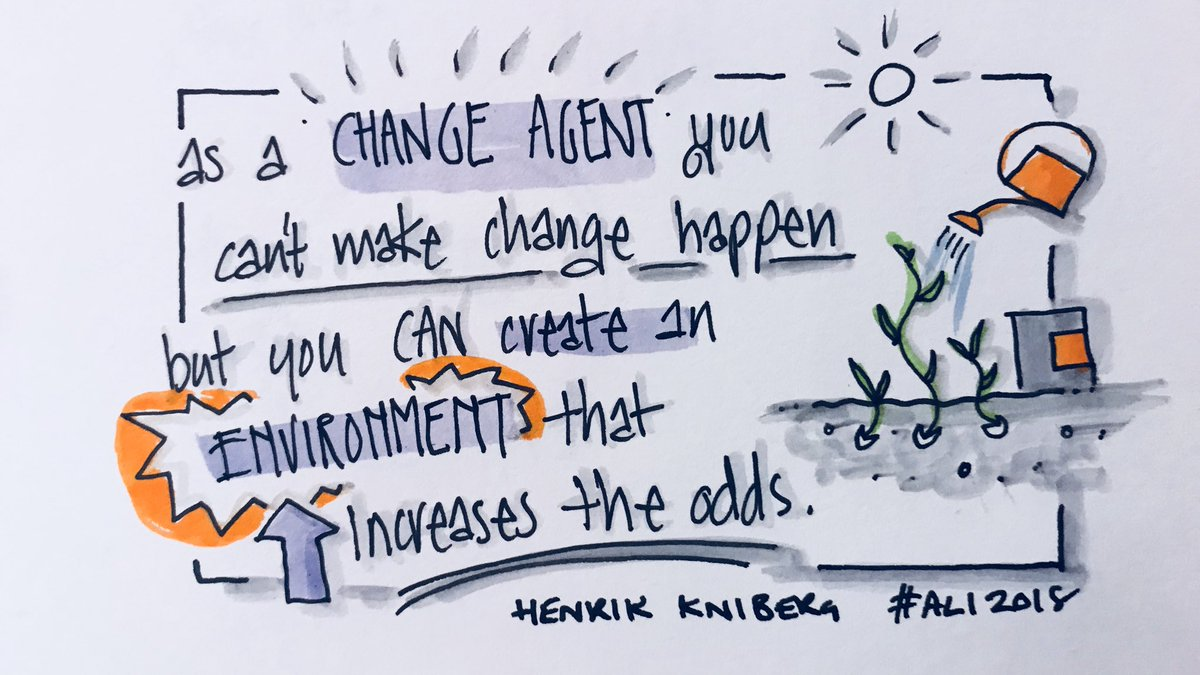 as a CHANGE AGENT you
can't make change happen
but you CAN create an
ENVIRONMENT that
increases the odds.
HENRIK KNIBERG #ALI2018